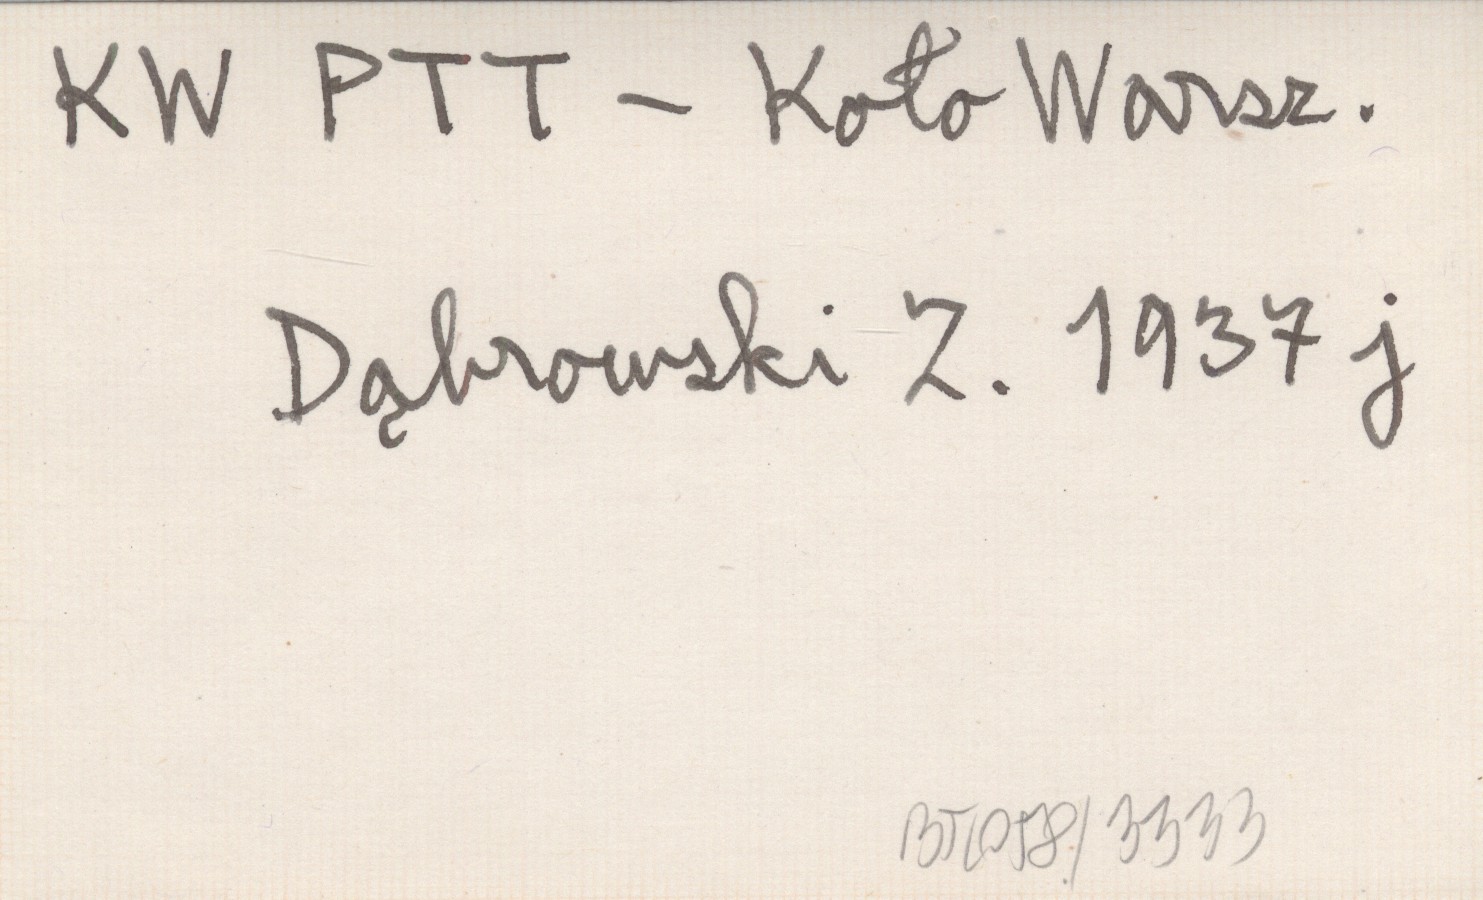 KW PTT - Koło Warsz.
Dąbrowski Z. 1937 j
3333